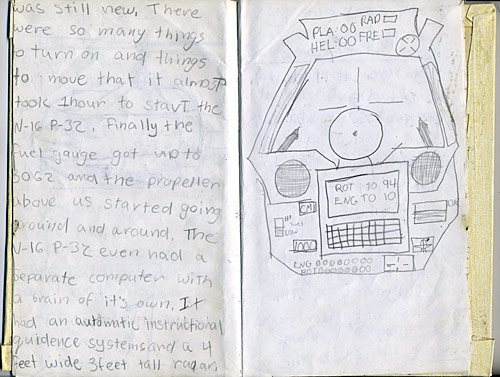 was still new. There
were so many things
to turn on and things
to move that it almost
took 1hour to start the
N-16 P-32. Finally the
fuel gauge got up to
and the propeller
above us started going
around and around. The
N-16 P-32 even had a
separate computer with
a brain of it's own. It
had an automatic instructional
guidence systems and a 4
feet wide 3feet tall radar
PLA:00 RAD
HEL:00 FRE
ROT TO 94
ENG TO 10
HI
LOW
ENG
ROT